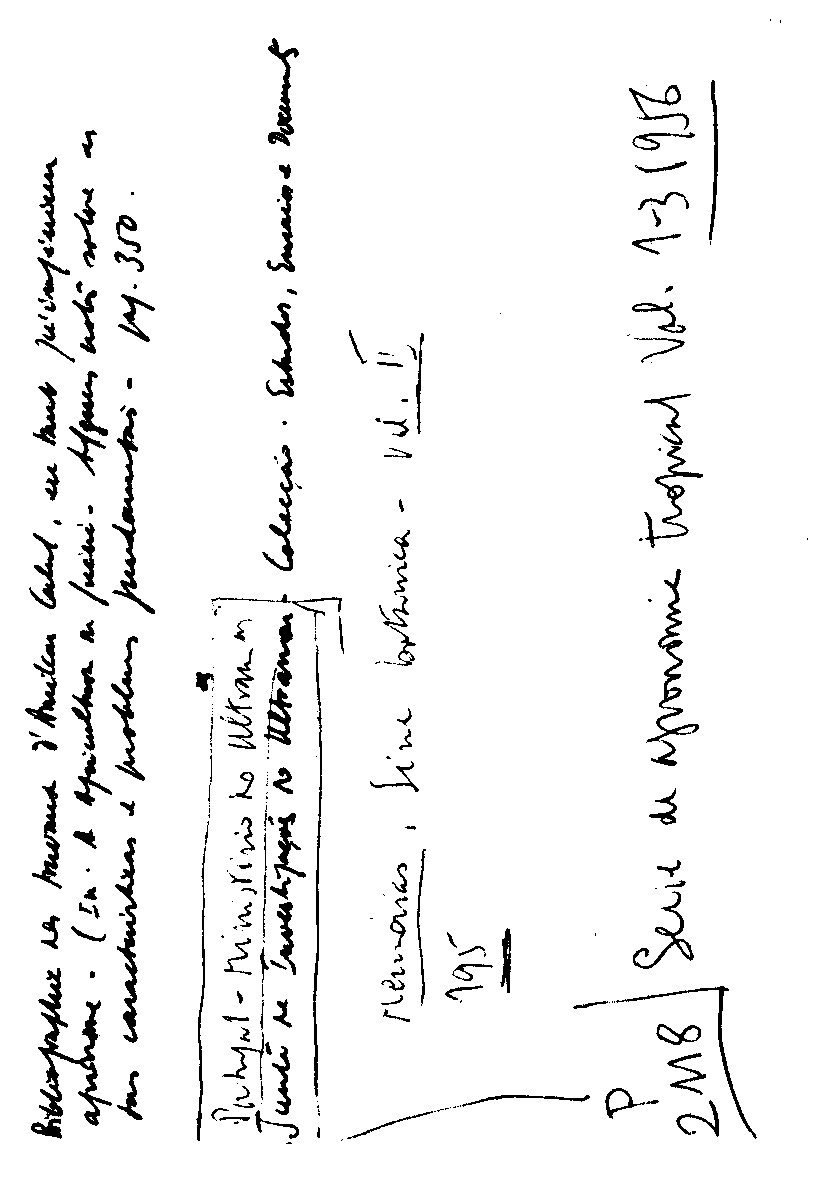 Bibliographie des travaux d'Amilcar Cabral, en tant qu'ingénieur
agronome - (In: A agricultura da Guiné - Algumas notas sobre as
suas características e problemas fundamentais - pag. 350.
Portugal - Ministério do Ultramar
Junta de Investigações do Ultramar - Colecção. Estudos, Ensaios e Documents
Memórias, Série botanica - Vol. II
195
P
2118
Serie de agronomie tropical Vol. 1-3 1956